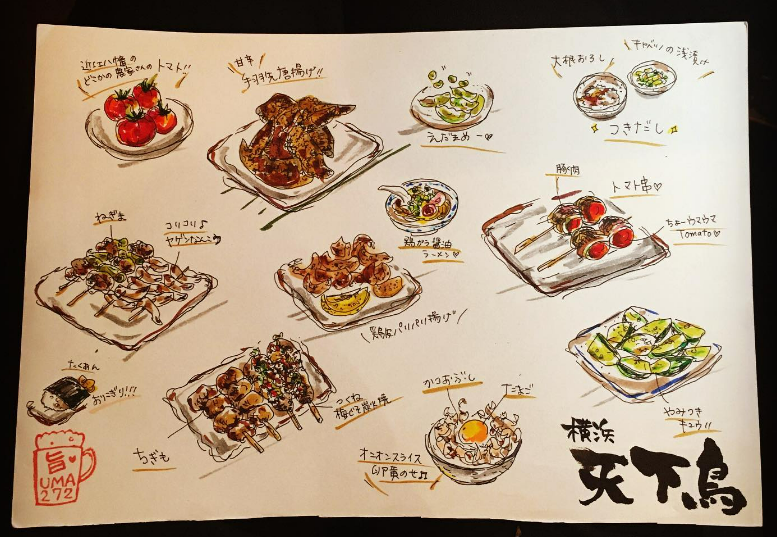 近江八幡の
どこかの農家さんのトマト!!
甘辛
手羽先唐揚げ!!
えだまめー♡
大根おろし
キャベツの浅漬け
つきだし
豚肉
トマト串♡
ちょーウマウマ
Tomato♡
ねぎま
コリコリ♪
ヤゲンなんこつ
鶏がら醤油
ラーメン♡
鶏皮パリパリ揚げ
たくあん
おにぎり!!!
ちぎも
つくね
梅しそ炭火焼
かつおぶし
たまご
オニオンスライス
卵黄のせ♫
やみつき
キュウリ!!
旨♥
UMA
272
横浜
天下鳥